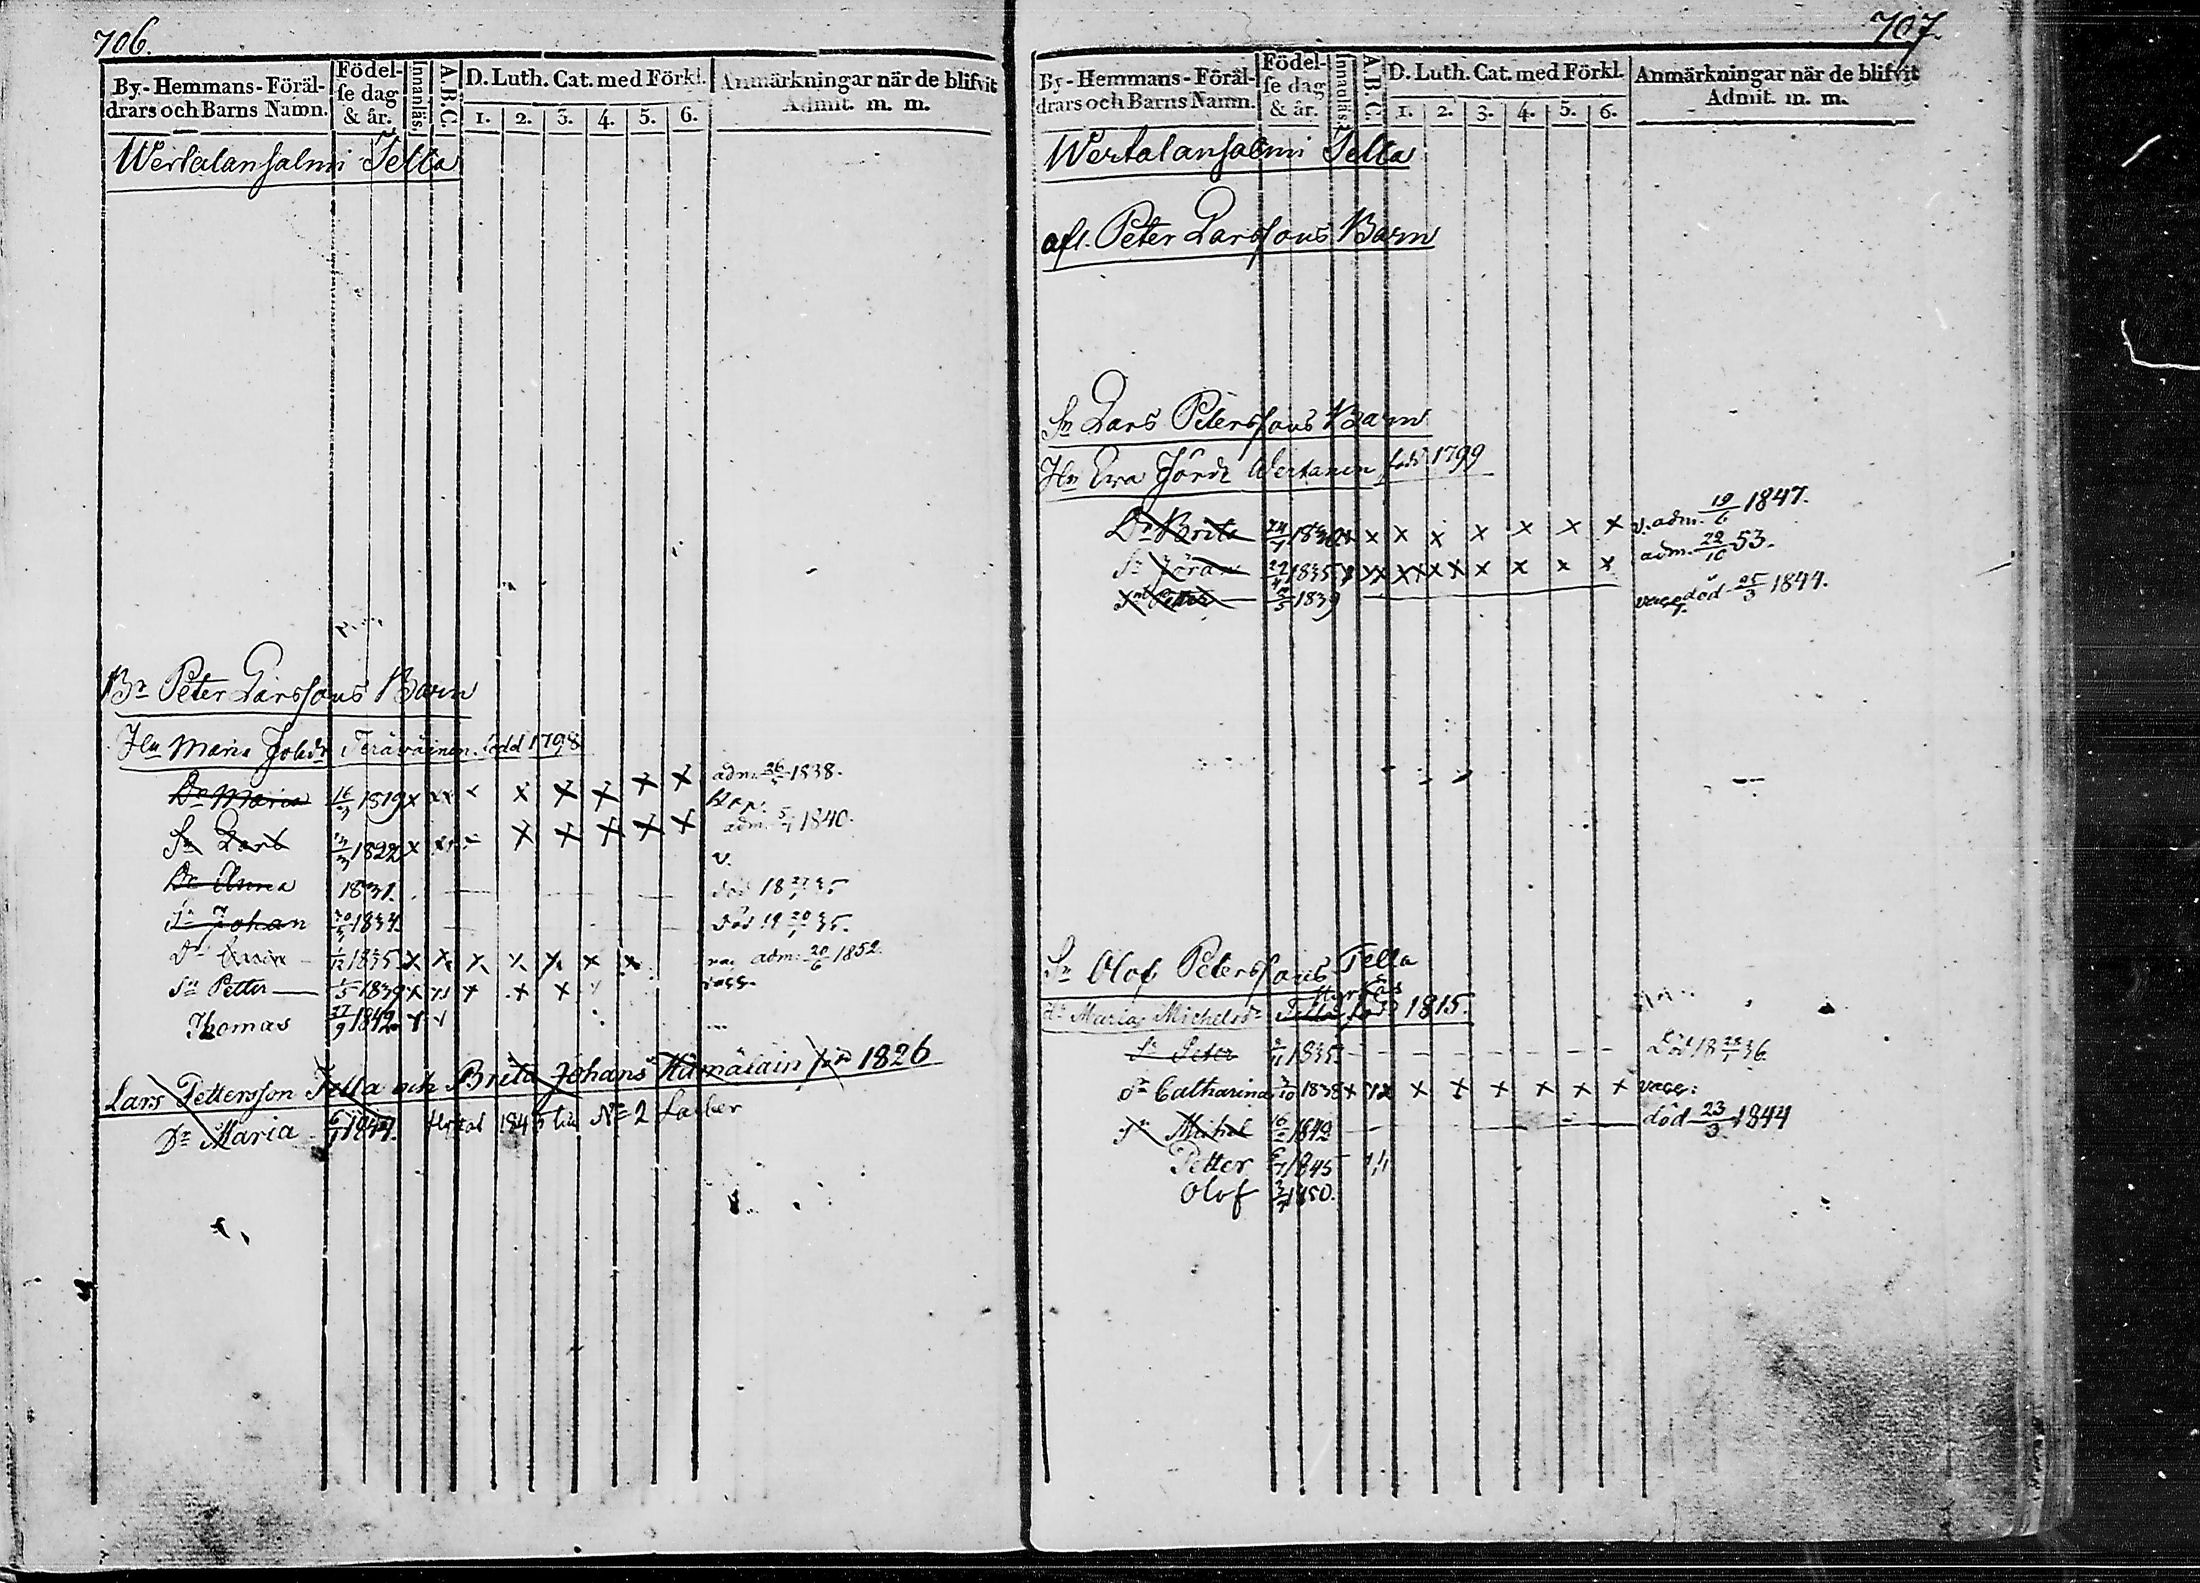 706.
By-Hemmans-Föräl-
drars och Barns Namn.
Födel-
se dag
& år.
Innanläs.
A.B.C.
D. Luth. Cat. med Förkl.
1. 2. 3. 4. 5. 6.
Anmärkningar när de blifvit
Admit. m. m.
Wertalansalmi Tella
Br Peter Larssons Barn
Hu Maria Johdr Teräväinen född 1798
Dr Maria 16 1819 x xx x x x x x x adm. 26 1838.
Sn Lars 3 1822 x x x x x x x adm. 5 1840.
v.
Dr Anna 1831. död 18 27 35
Sn Johan 1834 död 18 20 35.
Dr 1/12 1835 x x x x x x x adm. 20/6 1852.
Sn Petter 1/5 1839 x x x x vacc.
Thomas 27/9 1842
Lars Pettersson Tella och Brita Johans 1826
Dr Maria 6 1844. 1845 till No 2
707.
By-Hemmans-Föräl-
drars och Barns Namn.
Födel-
se dag
& år.
Innanläs.
A.B.C.
D. Luth. Cat. med Förkl.
1. 2. 3. 4. 5. 6.
Anmärkningar när de blifvit
Admit. m. m.
Wertalansalmi Tella
afl. Peter Larssons Barn
Sn Lars Peterssons Barn
Hu Eva Jördr Wertanen född 1799
Dr Brita 24 1830 x x x x x x x x v. adm. 19/6 1847.
Sn Jöran 22 1835 x xx xx xx x x x x x adm. 22/10 53.
Sn Petter 5 1839 vacc. död 25/3 1844.
Sn Olof Peterssons Tella
Hu Maria Michelsdr Tella född 1815.
Sn Peter 1835. Död 18 36
Dr Catharina 3/10 1838 x x x x x x x vacc:
Sn Michel 16 1842 död 23/3 1844
Petter 6 1845
Olof 3 1850.